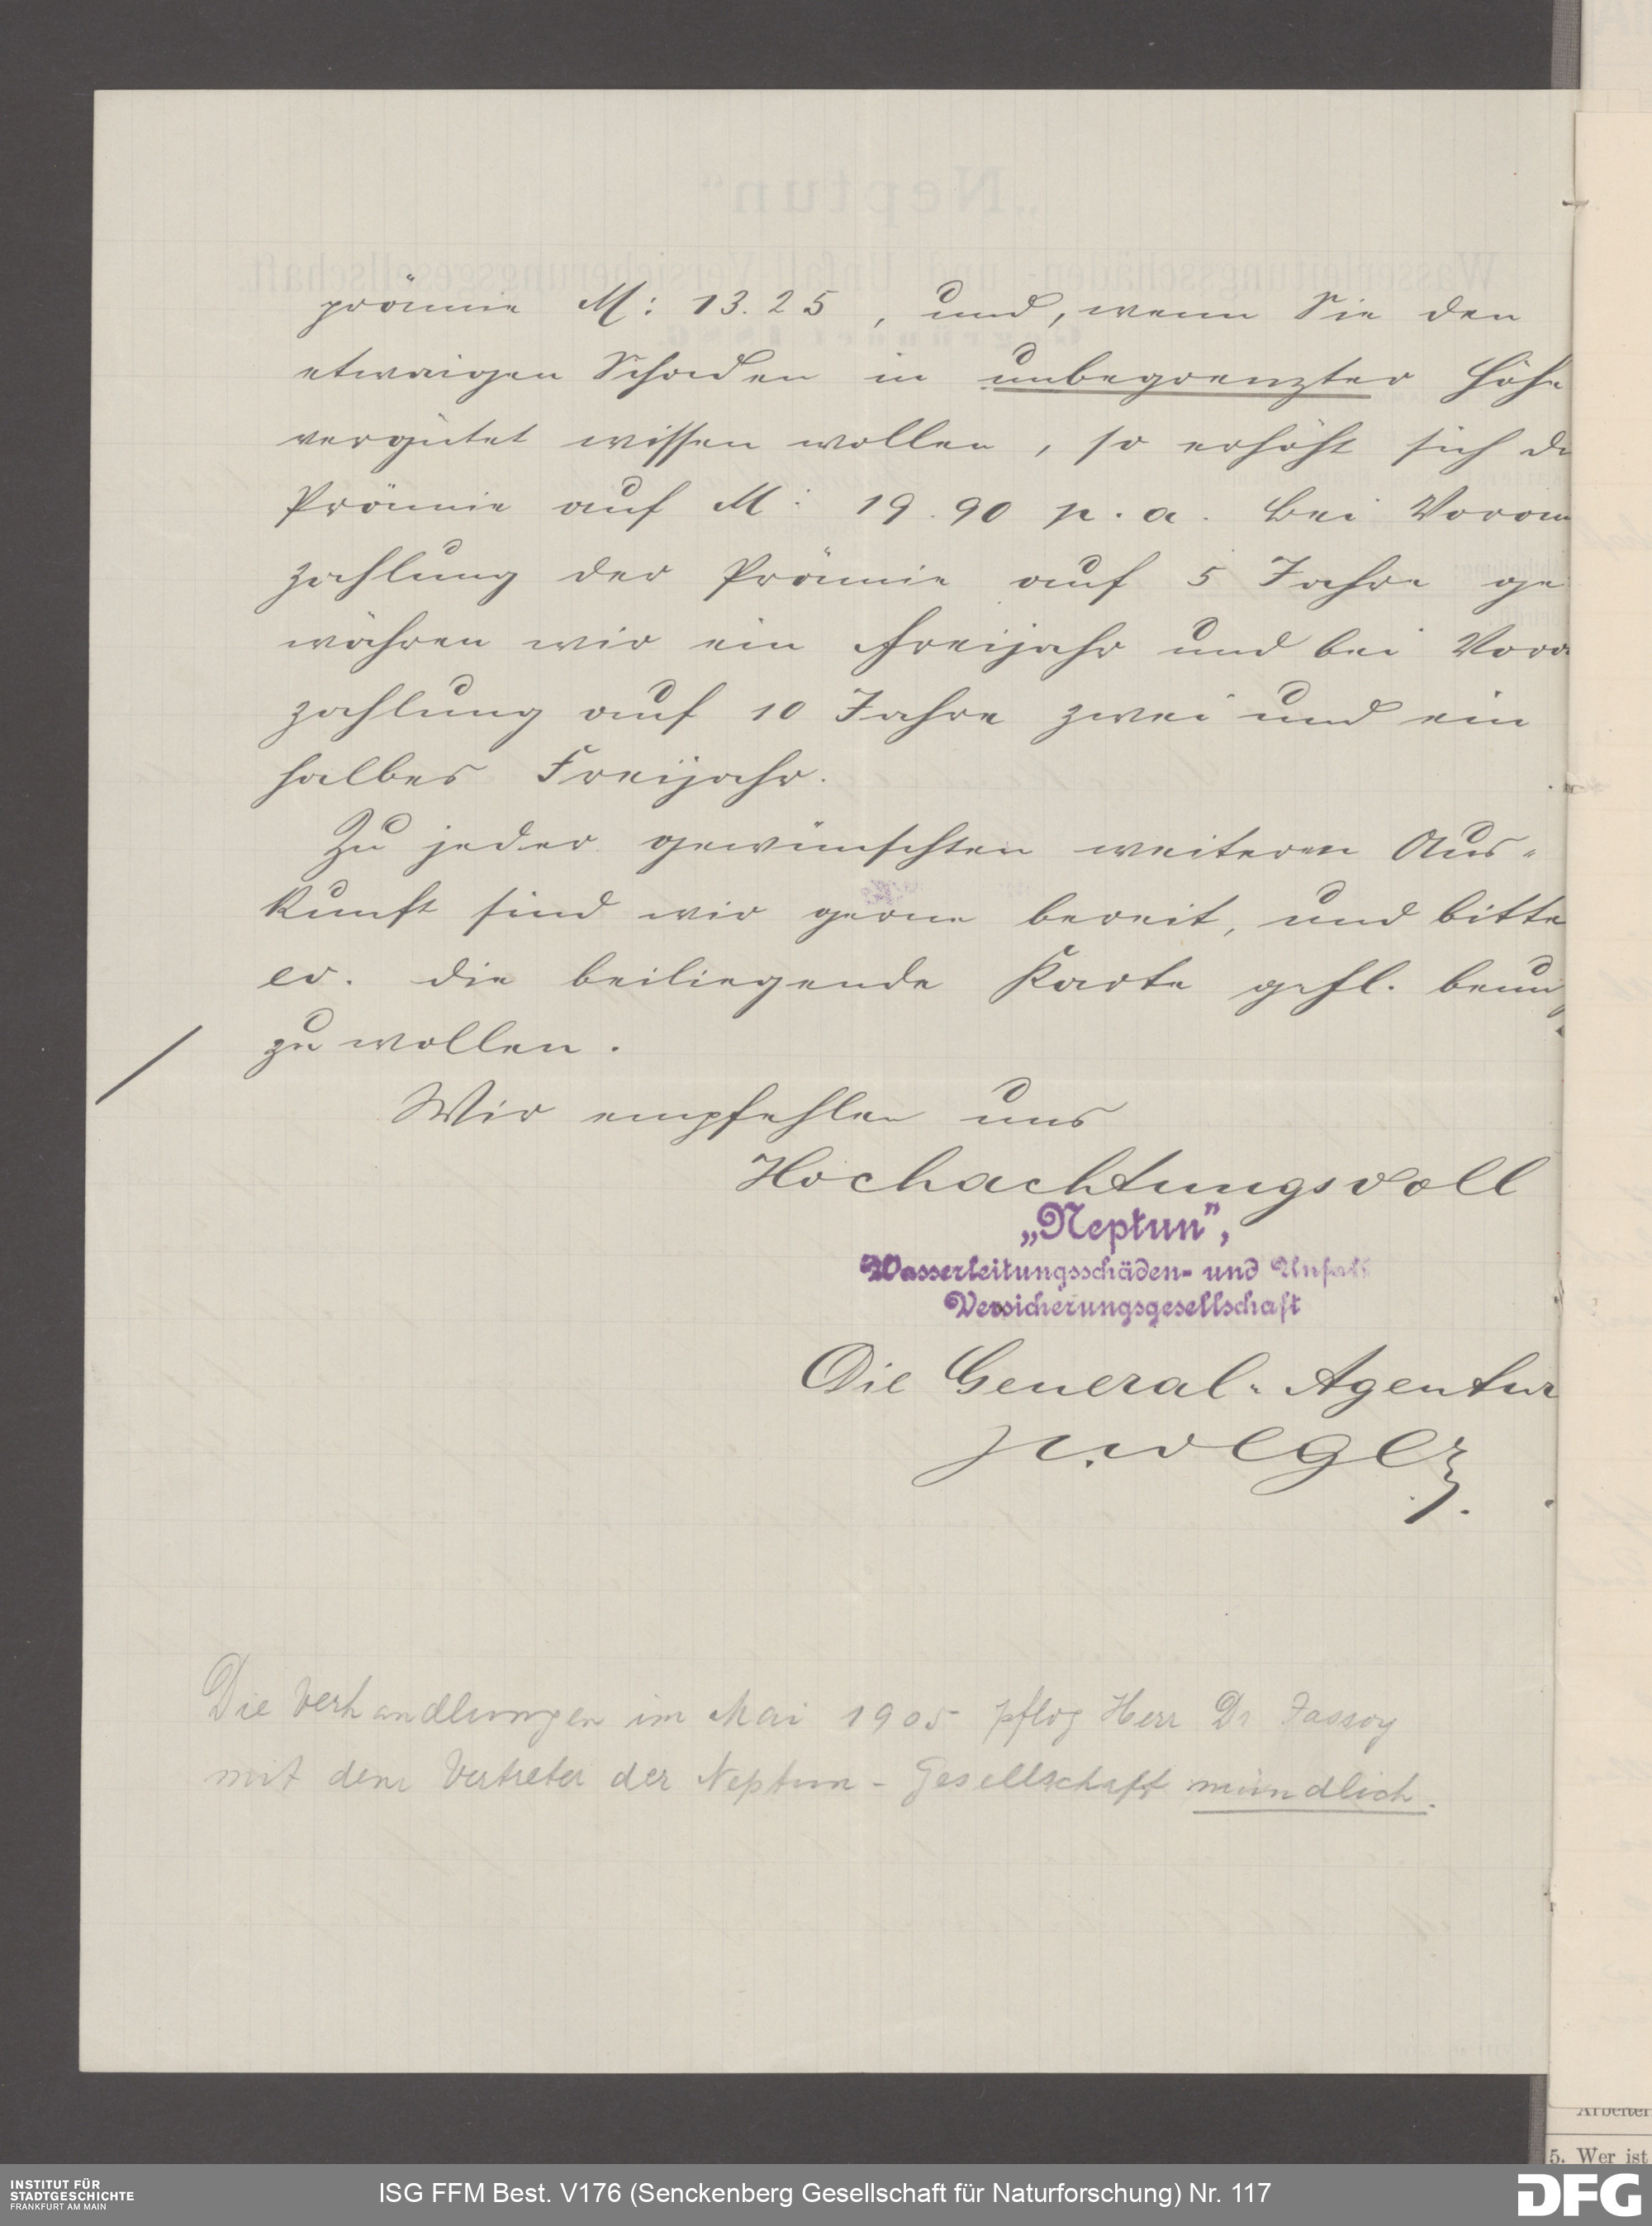 prämie M: 13.25, und, wenn Sie den
etwaigen Schaden in unbegrenzter Höhe
vergütet wissen wollen, so erhöht sich di
Prämie auf M: 19.90 p. a. Bei Voraus
zahlung der Prämie auf 5 Jahre ge
währen wir ein Freijahr und bei Vora
zahlung auf 10 Jahre zwei und ein
halbes Freijahr.
Zu jeder gewünschten weiteren Aus-
kunft sind wir gerne bereit, und bitte
ev. die beiliegende Karte gefl. benu
zu wollen.
Wir empfehlen uns
Hochachtungsvoll
„Neptun",
Wasserleitungsschäden- und Unfall
Versicherungsgesellschaft
Die General-Agentur
Die Verhandlungen im Mai 1905 pflog Herr Dr Jassoy
mit dem Vertreter der Neptun-Gesellschaft mündlich.
Arbeiter
5. Wer ist
INSTITUT FÜR
STADTGESCHICHTE
FRANKFURT AM MAIN
ISG FFM Best. V176 (Senckenberg Gesellschaft für Naturforschung) Nr. 117
DFG